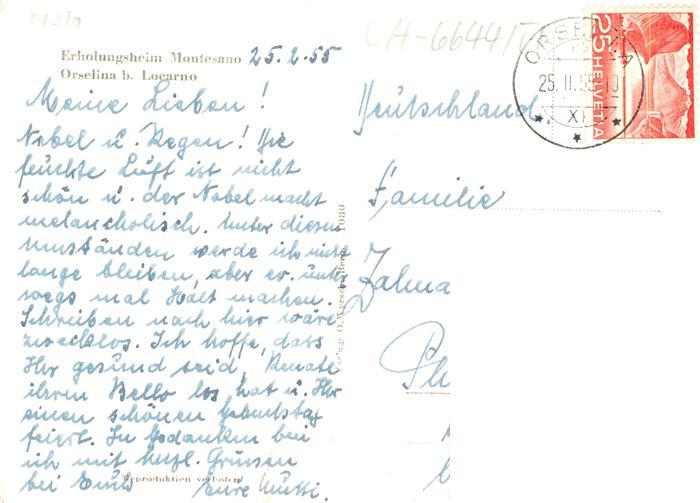 CH-6644
Erholungsheim Montesano 25.2.55
Orselina b. Locarno
Meine Lieben!
Nebel u. Regen! Die
feuchte Luft ist nicht
schön u. der Nebel macht
melancholisch. Unter diesen
Umständen werde ich nicht
lange bleiben, aber ev. unter
wegs mal Halt machen.
Schreiben nach hier wäre
zwecklos. Ich hoffe, dass
Ihr gesund seid, Renate
ihren Bello los hat u. Ihr
einen schönen Geburtstag
feiert. In Gedanken bin
ich mit herzl. Grüssen
bei Euch Eure Mutti.
Reproduktion verboten
1080
Deutschland
Familie
Zalma
ORSELINA
25. II. 55
XI
25 HELVETIA